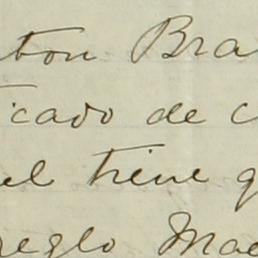 ton Bra
icado de c
el tiene q
reglo Mae